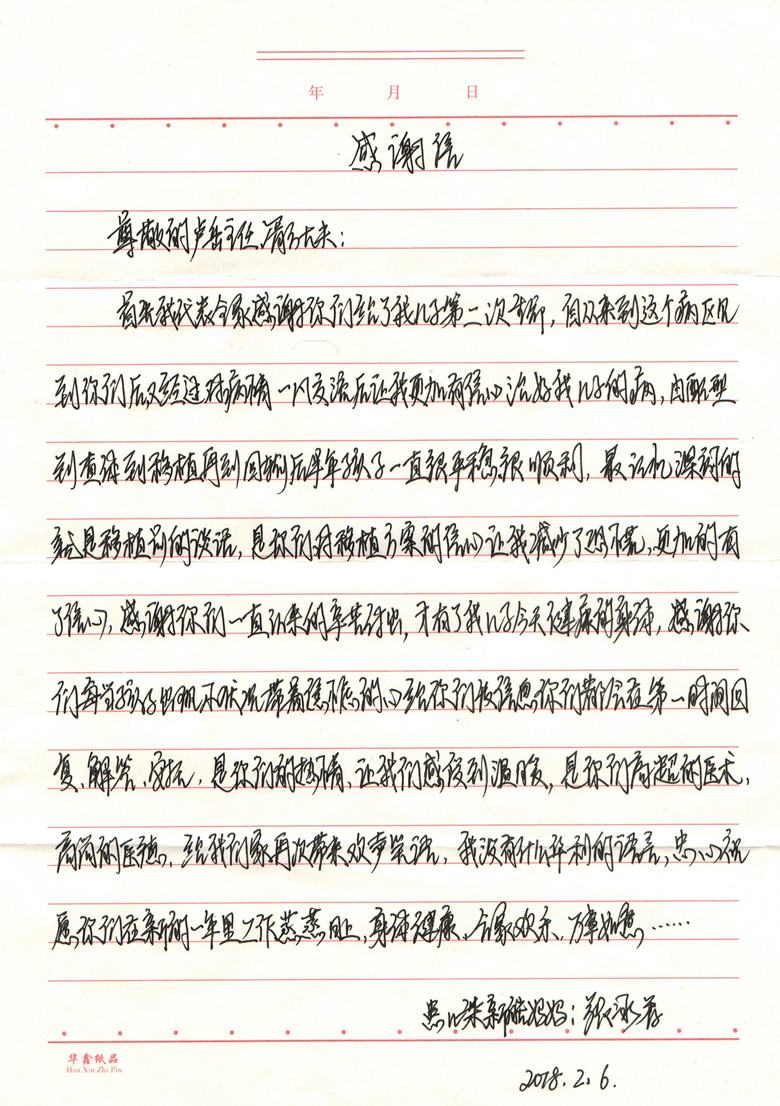 年 月 日
感谢信
尊敬的卢岳主任、大夫:
首先我代表全家感谢你们给了我儿子第二次生命,自从来到这个病区见
到你们后,又经过对病情一以交流后让我更加有信心治好我儿子的病,由配型
到查体到移植再到回输后半年孩子一直很平稳很顺利,最记忆深刻的
就是移植前的谈话,是你们对移植方案的信心让我减少了恐慌,更加的有
了信心,感谢你们一直以来的辛苦付出,才有了我儿子今天健康的身体,感谢你
们每当孩子出现不状况带着焦虑的心给你们发信息你们都会在第一时间回
复、解答、安抚,是你们的热情,让我们感受到温暖,是你们高超的医术,
高尚的医德,给我们家再次带来欢声笑语,我没有什么华利的语言,忠心祝
愿你们在新的一年里工作蒸蒸日上,身体健康、合家欢乐、万事如意……
患儿新皓妈妈:张
2018.2.6.
华鑫纸品
Hua Xin Zhi Pin